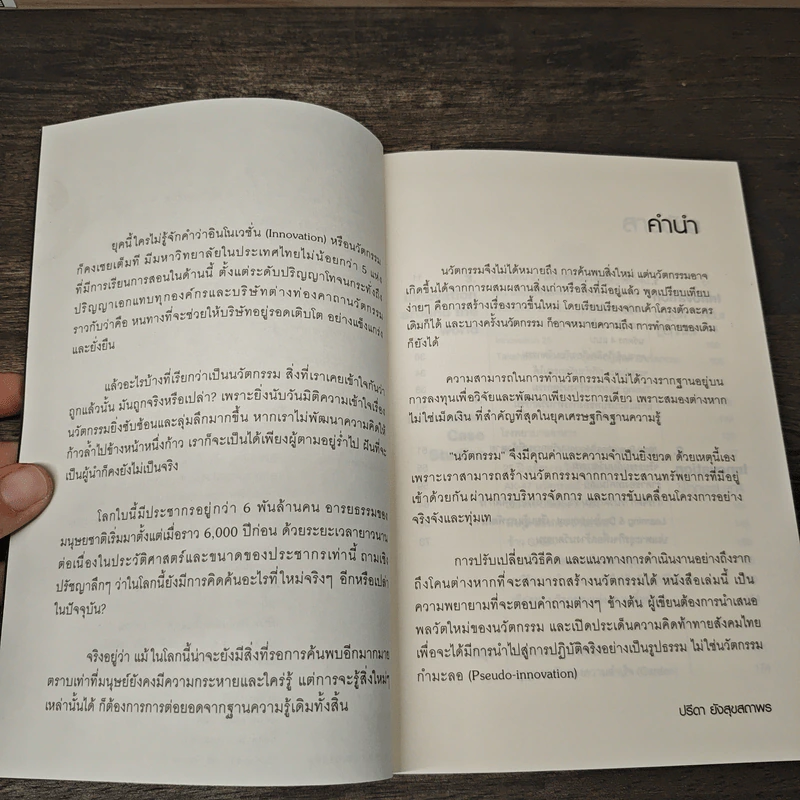 ยุคนี้ใครไม่รู้จักคำว่าอินโนเวชั่น (Innovation) หรือนวัตกรรม
ก็คงเชยเต็มที มีมหาวิทยาลัยในประเทศไทยไม่น้อยกว่า 5 แห่ง
ที่มีการเรียนการสอนในด้านนี้ ตั้งแต่ระดับปริญญาโทจนกระทั่งถึง
ปริญญาเอกแทบทุกองค์กรและบริษัทต่างท่องคาถานวัตกรรม
ราวกับว่าคือ หนทางที่จะช่วยให้บริษัทอยู่รอดเติบโต อย่างแข็งแกร่ง
และยั่งยืน
แล้วอะไรบ้างที่เรียกว่าเป็นนวัตกรรม สิ่งที่เราเคยเข้าใจกันว่า
ถูกแล้วนั้น มันถูกจริงหรือเปล่า? เพราะยิ่งนับวันมิติความเข้าใจเรื่อง
นวัตกรรมยิ่งซับซ้อนและลุ่มลึกมากขึ้น หากเราไม่พัฒนาความคิดให้
ก้าวล้ำไปข้างหน้าหนึ่งก้าว เราก็จะเป็นได้เพียงผู้ตามอยู่ร่ำไป ฝันที่จะ
เป็นผู้นำก็คงยังไม่เป็นจริง
โลกใบนี้มีประชากรอยู่กว่า 6 พันล้านคน อารยธรรมของ
มนุษยชาติเริ่มมาตั้งแต่เมื่อราว 6,000 ปีก่อน ด้วยระยะเวลายาวนาน
ต่อเนื่องในประวัติศาสตร์และขนาดของประชากรเท่านี้ ถามเชิง
ปรัชญาลึกๆ ว่าในโลกนี้ยังมีการคิดค้นอะไรที่ใหม่จริงๆ อีกหรือเปล่า
ในปัจจุบัน?
จริงอยู่ว่า แม้ในโลกนี้น่าจะยังมีสิ่งที่รอการค้นพบอีกมากมาย
ตราบเท่าที่มนุษย์ยังคงมีความกระหายและใคร่รู้ แต่การจะรู้สิ่งใหม่ๆ
เหล่านั้นได้ ก็ต้องการการต่อยอดจากฐานความรู้เดิมทั้งสิ้น
คำนำ
นวัตกรรมจึงไม่ได้หมายถึง การค้นพบสิ่งใหม่ แต่นวัตกรรมอาจ
เกิดขึ้นได้จากการผสมผสานสิ่งเก่าหรือสิ่งที่มีอยู่แล้ว พูดเปรียบเทียบ
ง่ายๆ คือการสร้างเรื่องราวขึ้นใหม่ โดยเรียบเรียงจากเค้าโครงตัวละคร
เดิมก็ได้ และบางครั้งนวัตกรรม ก็อาจหมายความถึง การทำลายของเดิม
ก็ยังได้
ความสามารถในการทำนวัตกรรมจึงไม่ได้วางรากฐานอยู่บน
การลงทุนเพื่อวิจัยและพัฒนาเพียงประการเดียว เพราะสมองต่างหาก
ไม่ใช่เม็ดเงิน ที่สำคัญที่สุดในยุคเศรษฐกิจฐานความรู้
"นวัตกรรม" จึงมีคุณค่าและความจำเป็นยิ่งยวด ด้วยเหตุนี้เอง
เพราะเราสามารถสร้างนวัตกรรมจากการประสานทรัพยากรที่มีอยู่
เข้าด้วยกัน ผ่านการบริหารจัดการ และการขับเคลื่อนโครงการอย่าง
จริงจังและทุ่มเท
การปรับเปลี่ยนวิธีคิด และแนวทางการดำเนินงานอย่างถึงราก
ถึงโคนต่างหากที่จะสามารถสร้างนวัตกรรมได้ หนังสือเล่มนี้ เป็น
ความพยายามที่จะตอบคำถามต่างๆ ข้างต้น ผู้เขียนต้องการนำเสนอ
พลวัตใหม่ของนวัตกรรม และเปิดประเด็นความคิดท้าทายสังคมไทย
เพื่อจะได้มีการนำไปสู่การปฏิบัติจริงอย่างเป็นรูปธรรม ไม่ใช่นวัตกรรม
กำมะลอ (Pseudo-innovation)
ปรีดา ยังสุขสถาพร